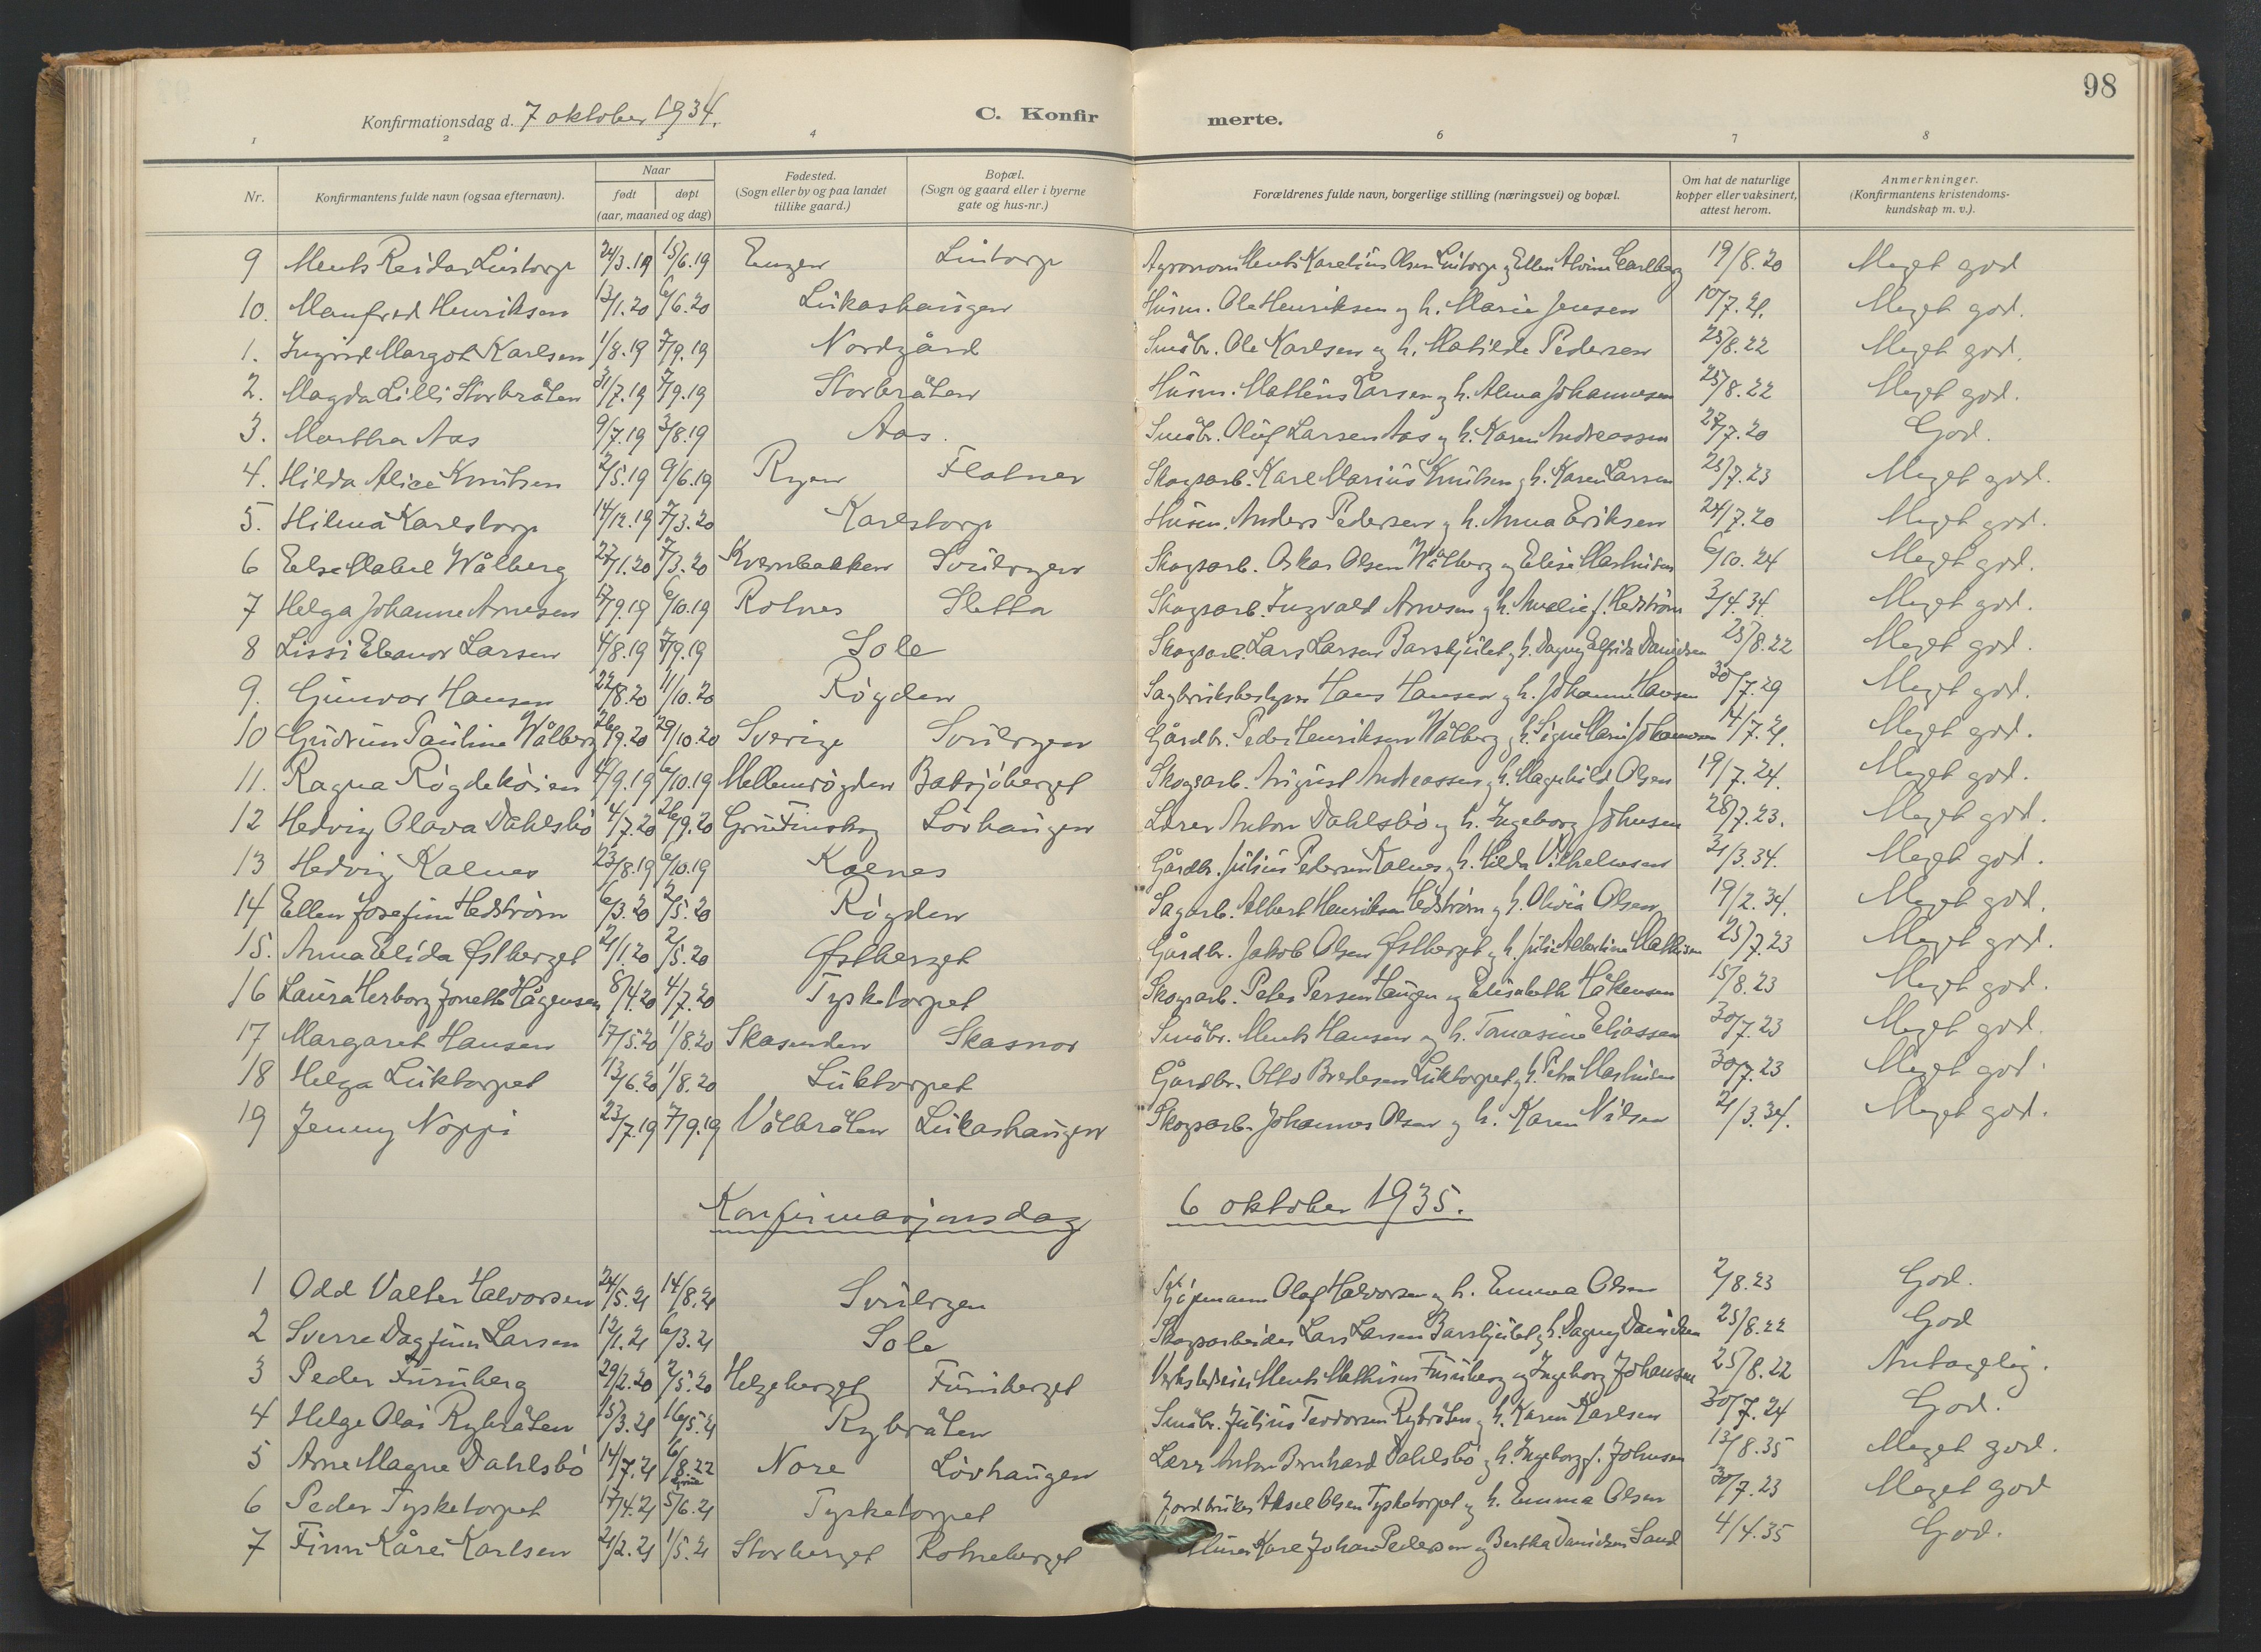 98
Konfirmationsdag d. 7 oktober 1934. C. Konfirmerte.
1 2 3 4 6 7 8
Nr. Konfirmantens fulde navn (ogsaa efternavn). Naar født døpt (aar, maaned og dag) Fødested. (Sogn eller by og paa landet tillike gaard.) Bopæl. (Sogn og gaard eller i byerne gate og hus-nr.) Forældrenes fulde navn, borgerlige stilling (næringsvei) og bopæl. Om hat de naturlige kopper eller vaksinert, attest herom. Anmerkninger. (Konfirmantens kristendomskundskap m. v.).
9 Ments Reidar Lintorp 24/3.19 15/6.19 Enger Lintorp Agronom Ments Karelius Olsen Lintorp og Ellen Alvine Carlberg 19/8.20 Meget god
10. Manfred Henriksen 13/1.20 6/6.20 Lukashaugen Husm. Ole Henriksen og h. Marie Jensen 10/7.21. Meget god.
1. Ingrid Margot Karlsen 1/8.19 7/9.19 Nordgård Småbr. Ole Karlsen og h. Matilde Pedersen 25/8.22 Meget god.
2. Magda Lilli Storbråten 31/7.19 7/9.19 Storbråten Husm. Matheus Larsen og h. Alma Johannesen 25/8.22 Meget god.
3. Martha Aas 9/7.19 3/8.19 Aas. Småbr. Oluf Larsen Aas og h. Karen Andreassen 27/7.20 God.
4. Hilda Alice Knutsen 2/5.19 9/6.19 Ryen Flatner Skogsarb. Karl Marius Knutsen og h. Karen Larsen 25/7.23 Meget god.
5. Hilma Karlstorp 14/12.19 7/3.20 Karlstorp Husm. Anders Pedersen og h. Anna Eriksen 24/7.20 Meget god.
6 Else Mabel Wålberg 27/1.20 7/3.20 Kvernbakken Svulryen Skogsarb. Oskar Olsen Wålberg og Elise Mathisen 6/10.24 Meget god.
7 Helga Johanne Arnesen 17/9.19 6/10.19 Rotnes Sletta Skogsarb. Ingvald Arnesen og h. Amalie f. Hedstrøm 3/4.34 Meget god.
8 Lissi Eleanor Larsen 4/8.19 7/9.19 Sole Skogsarb. Lars Larsen Barskjulet og h. Dagny Elfrida Danielsen 25/8.22 Meget god.
9. Gunvor Hansen 22/8.20 11/10.20 Røgden Sagbruksbestyrer Hans Hansen og h. Johanne Hansen 30/7.29 Meget god.
10 Gudrun Pauline Wålberg 26/9.20 29/10.20 Sverige Svulryen Gårdbr. Peder Henriksen Wålberg og h. Signe Marie Johannesen 14/7.21. Meget god.
11. Ragna Røgdekøien 4/9.19 6/10.19 Mellemrøgden Baksjøberget Skogsarb. August Andreassen og h. Magnhild Olsen 19/7.24. Meget god.
12 Hedvig Olava Dahlsbø 4/7.20 26/9.20 Grue Finskog Løvhaugen Lærer Anton Dahlsbø og h. Ingeborg Johnsen 28/7.23. Meget god.
13 Hedvig Kalnes 23/8.19 6/10.19 Kalnes Gårdbr. Julius Pedersen Kalnes og h. Hilda Vilhelmsen 21/3.34. Meget god.
14 Ellen Josefine Hedstrøm 6/3.20 2/5.20 Røgden Sagarb. Albert Henriksen Hedstrøm og h. Olivia Olsen 19/2.34. Meget god.
15. Anna Elida Østberget 21/1.20 2/5.20 Østberget Gårdbr. Jakob Olsen Østberget og h. Julie Albertine Mathisen 25/7.23 Meget god.
16 Laura Herborg Jonette Hågensen 8/4.20 4/7.20 Tysketorpet Skogsarb. Peter Persen Haugen og Elisabeth Håkensen 15/8.23 Meget god.
17 Margaret Hansen 17/5.20 1/8.20 Skasenden Skasnor Småbr. Ments Hansen og h. Tomasine Eliassen 30/7.23 Meget god.
18 Helga Luktorpet 13/6.20 1/8.20 Luktorpet Gårdbr. Otto Bredesen Luktorpet og h. Petra Mathisen 30/7.23 Meget god.
19 Jenny Noppi 23/7.19 7/9.19 Vålbråten Lukashaugen Skogsarb. Johannes Olsen og h. Karen Nilsen 21/3.34. Meget god.
Konfirmasjonsdag 6 oktober 1935.
1 Odd Valter Halvorsen 24/5.21 14/8.21 Svulryen Kjøpmann Olaf Halvorsen og h. Emma Olsen 2/8.23 God.
2 Sverre Dagfinn Larsen 12/1.21 6/3.21 Sole Skogsarbeider Lars Larsen Barskjulet og h. Dagny Danielsen 25/8.22 God
3 Peder Furuberg 29/2.20 2/5.20 Helgeberget Furuberget Verkstedeier Ments Mathisen Furuberg og Ingeborg Johansen 25/8.22 Antagelig.
4 Helge Olai Rybråten 15/3.21 16/5.21 Rybråten Småbr. Julius Teodorsen Rybråten og h. Karen Karlsen 30/7.24 God.
5 Arne Magne Dahlsbø 14/7.21 6/8.22 Grue Nore Løvhaugen Lærer Anton Bernhard Dahlsbø og h. Ingeborg f. Johnsen 13/8.35 Meget god.
6 Peder Tysketorpet 17/4.21 5/6.21 Tysketorpet Jordbruker Aksel Olsen Tysketorpet og h. Emma Olsen 30/7.23 Meget god
7 Finn Kåre Karlsen 21/2.21 1/5.21 Storberget Rotneberget Murer Karl Johan Pedersen og Bertha Danielsen Sand 4/4.35 God.